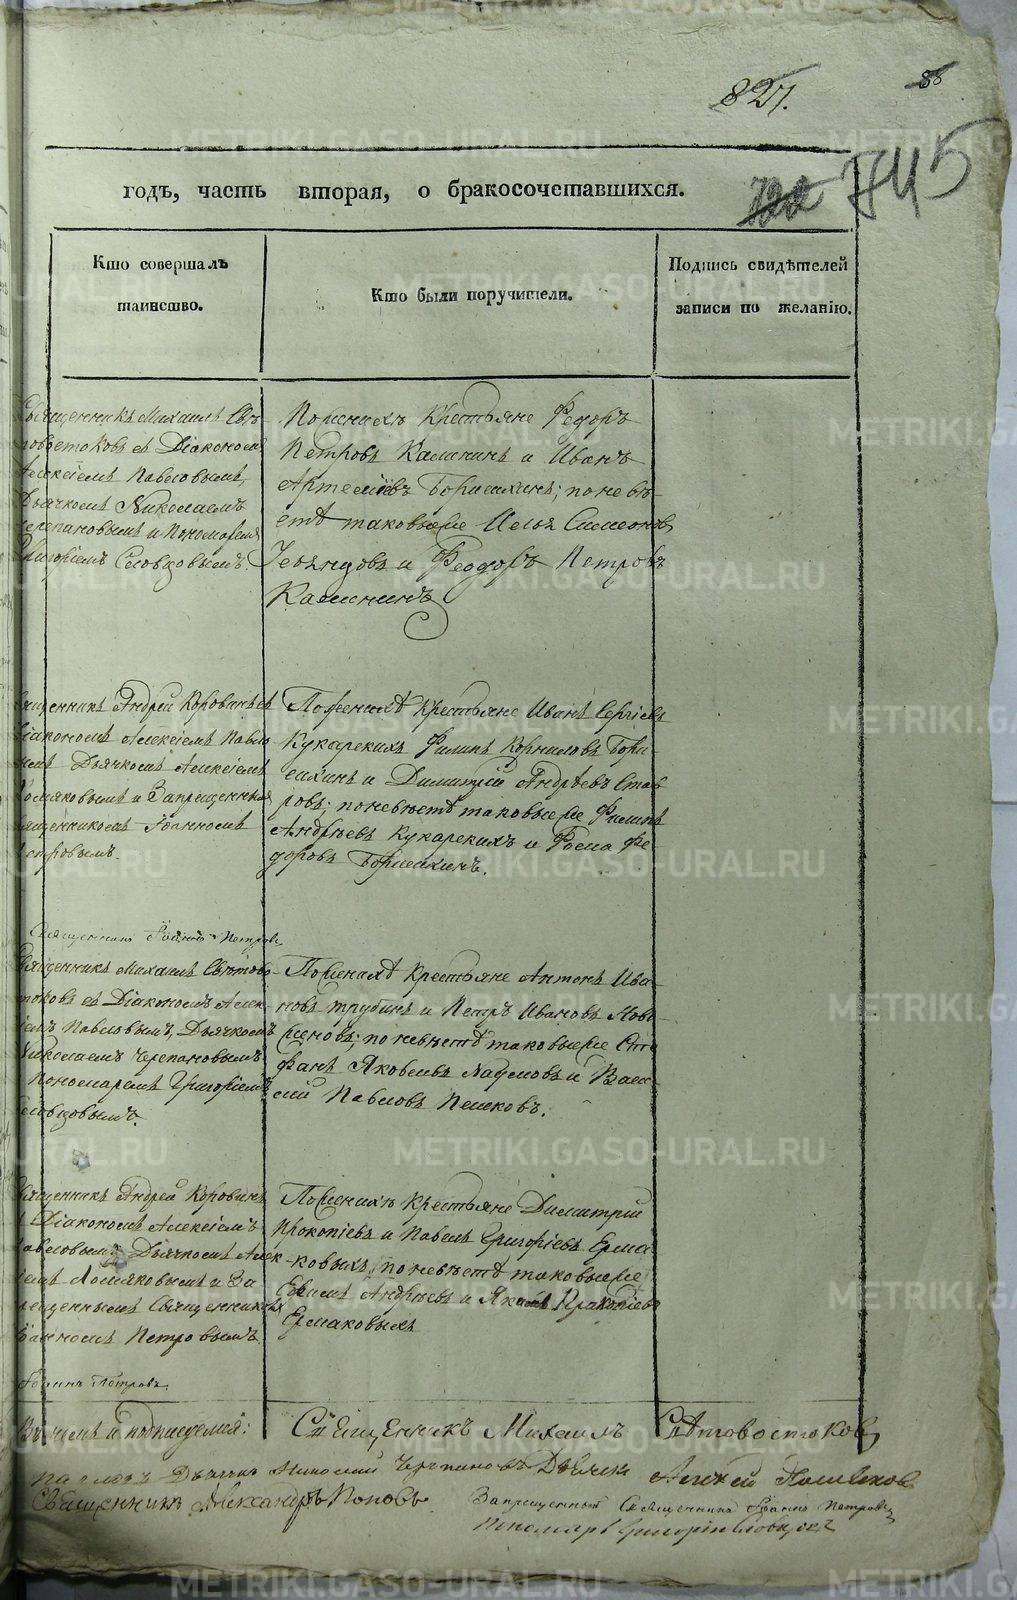 827.
88
745
годъ, часть вторая, о бракосочетавшихся.
Кто совершалъ таинство.
Кто были поручители.
Подпись свидѣтелей записи по желанію.
Священникъ Михаилъ Свѣ-
товостоковъ съ Діакономъ
Алексіемъ Павловымъ,
Дьячкомъ Николаемъ
Черепановымъ и Пономаремъ
Григоріемъ Словцовымъ.
По женихѣ Крестьяне Федоръ
Петровъ Калинин и Иванъ
Артеміевъ ; по невѣ-
стѣ таковыеже Илья Симеоновъ
и Феодоръ Петровъ
Калининъ
Священникъ Андрей
Діакономъ Алексіемъ Павло
Дьячкомъ Алексіемъ
и Запрещеннымъ
Священникомъ Іоанномъ
Петровымъ.
По женихѣ Крестьяне Иванъ Сергіевъ
Кукарскихъ Филипъ Корниловъ
и Димитрій Андрѣевъ
; по невѣстѣ таковыеже Филипъ
Андрѣевъ Кукарскихъ и Фома Фе-
доровъ
Священникъ Іоаннъ Петровъ
Священникъ Михаилъ Свѣтово-
стоковъ съ Діакономъ Алек-
сіемъ Павловымъ, Дьячкомъ
Николаемъ Черепановымъ
Пономаремъ Григоріемъ
Словцовымъ.
По женихѣ Крестьяне Антонъ Ива-
новъ Трубинъ и Петръ Ивановъ
; по невѣстѣ таковыеже Сте
фанъ Яковлевъ и Васи-
лій Павловъ Пешковъ.
Священникъ Андрей
Діакономъ Алексіемъ
Павловымъ Дьячкомъ Алек
и За
прещеннымъ Священникомъ
Іоанномъ Петровымъ.
По женихѣ Крестьяне Димитрій
Прокопіевъ и Павелъ Григоріевъ Ерма
ковыхъ, по невѣстѣ таковыеже
Андрѣевъ и Якимъ Прокопіевъ
Ермаковыхъ
Іоаннъ Петровъ
В чемъ и подписуемся: Священникъ Михаилъ Свѣтовостоковъ
Дьячекъ Николай Черепановъ Дьячекъ Алексей
Священникъ Александръ Поповъ Запрещенный Священникъ Іоаннъ Петровъ
Пономарь Григорій Словцовъ
METRIKI.GASO-URAL.RU